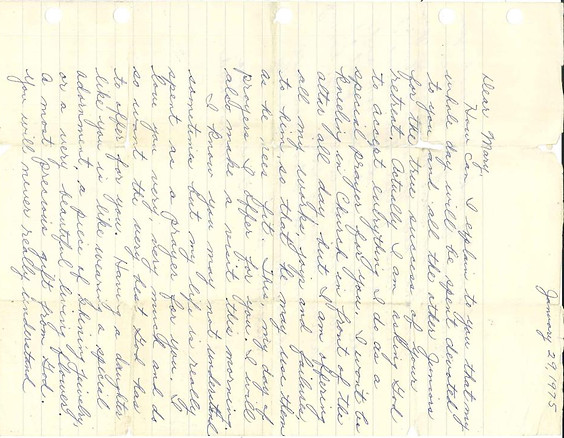 January 29, 1975
Dear Mary,
How can I explain to you that my
whole day will be spent devoted
to you and all the other Juniors
for the true success of your
Retreat. Actually I am asking God
to accept everything I do as a
special prayer for you. I won't be
kneeling in Church in front of the
altar all day, but I am offering
all my works, joys and failures,
to him, so that he may use them
as he sees fit. This my day of
prayer I offer for you. I will
also make a visit this morning.
I know you may not understand
sometimes but my life is really
spent as a prayer for you. I
love you very very much and do
so want the very best God has
to offer for you. Having a daughter
like you is like wearing a special
adornment, a piece of shining jewelry,
or a very beautiful living flower.
A most precious gift from God.
You will never really understand